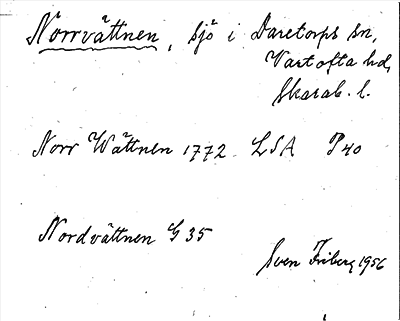 Norrvättnen, sjö i Daretorps sn,
Vartofta hd,
Skarab. l.
Norr Wättnen 1772 LSA P40
Nordvättnen G 35
Sven Friberg 1956